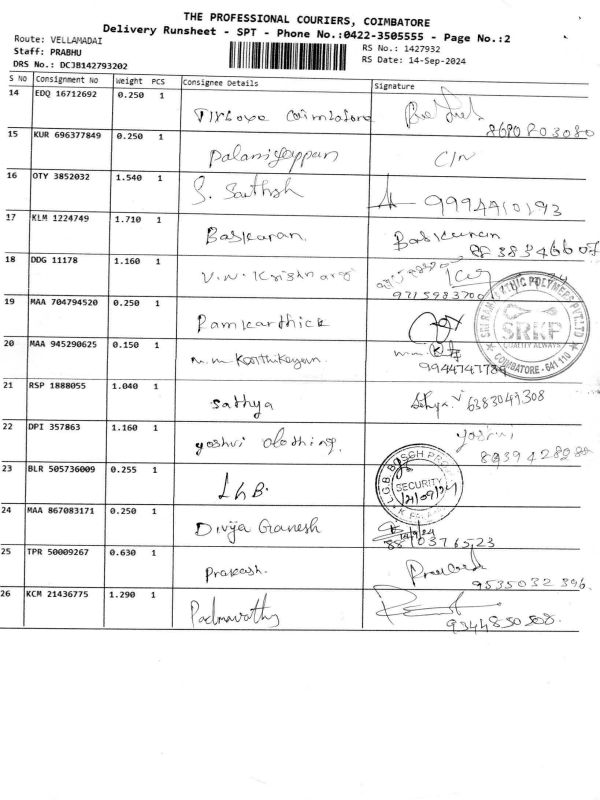 THE PROFESSIONAL COURIERS, COIMBATORE
Delivery Runsheet - SPT - Phone No.:0422-3505555 - Page No.:2
Route: VELLAMADAI
RS No.: 1427932
Staff: PRABHU
RS Date: 14-Sep-2024
DRS No.: DCJB142793202
S NO Consignment No Weight PCS Consignee Details Signature
14 EDQ 16712692 0.250 1
Coimbatore
15 KUR 696377849 0.250 1
Palaniyappan C/N
16 OTY 3852032 1.540 1
S. Sathish 9994910193
17 KLM 1224749 1.710 1
Baskaran Baskaran
18 DDG 11178 1.160 1
V.N. Krishnaraj
9715983700
19 MAA 704794520 0.250 1
Ramkarthick
SRI RAM POLYMERS PVT.LTD
SRKP
QUALITY ALWAYS
COIMBATORE - 641 110
20 MAA 945290625 0.150 1
M.M. Karthikeyan
21 RSP 1888055 1.040 1
Sathya Sathya.V 6383049308
22 DPI 357863 1.160 1
yoshvi clothing.
23 BLR 505736009 0.255 1
LGB. SECURITY
14/09/24
24 MAA 867083171 0.250 1
Divja Ganesh
25 TPR 50009267 0.630 1
Prakash.
9535032396.
26 KCM 21436775 1.290 1
Padmavathy
9344850508.